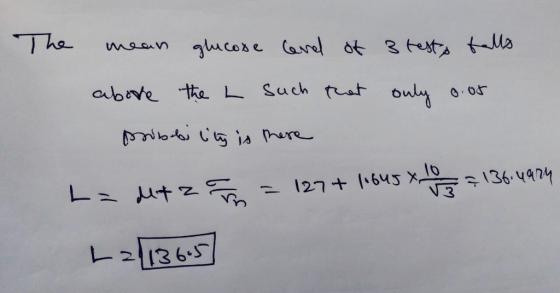 The mean glucose level of 3 tests falls
above the L such that only 0.05
probability is there
L = μ + z σ/√n = 127 + 1.645 × 10/√3 = 136.4974
L = 136.5